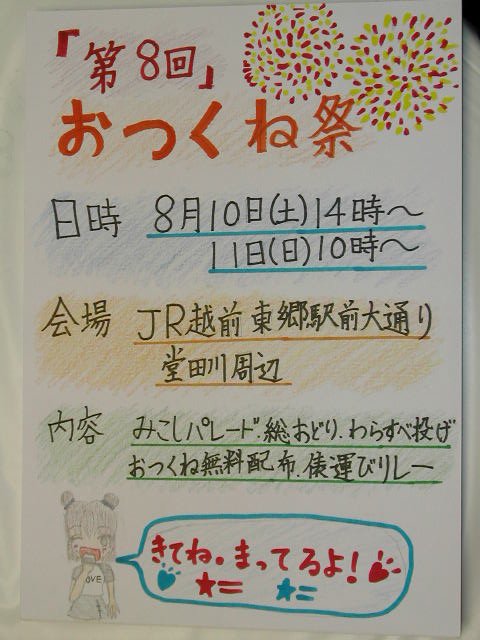 「第8回」
おつくね祭
日時 8月10日(土)14時〜
11日(日)10時〜
会場 JR越前東郷駅前大通り
堂田川周辺
内容 みこしパレード.総おどり.わらすべ投げ
おつくね無料配布.俵運びリレー
きてね。まってるよ!
OVE